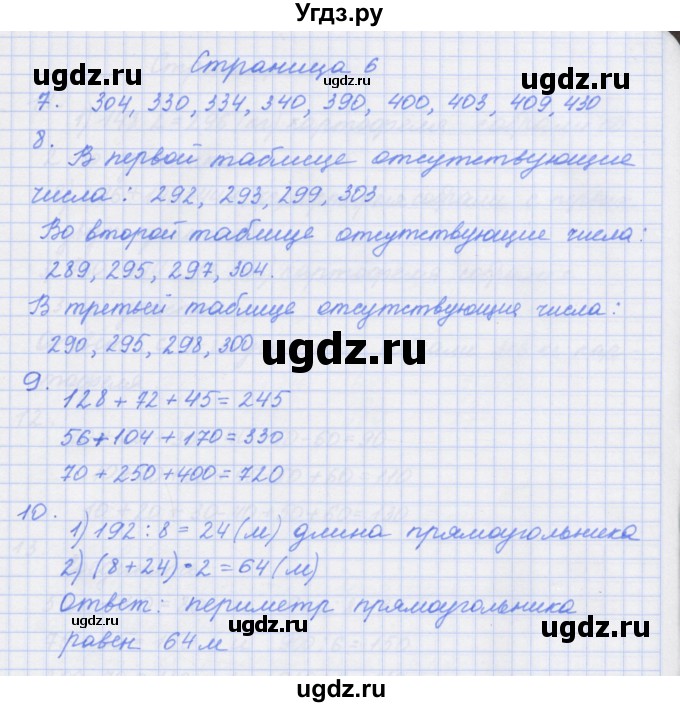 Угдз.ру
Страница 6
ugdz.ru ugdz.ru
7. 304, 330, 334, 340, 390, 400, 403, 409, 430
8.
В первой таблице отсутствующие
числа: 292, 293, 299, 303
ugdz.ru ugdz.ru
Во второй таблице отсутствующие числа:
289, 295, 297, 304.
В третьей таблице отсутствующие числа:
290, 295, 298, 300
ugdz.ru
9.
128 + 72 + 45 = 245
56 + 104 + 170 = 330
ugdz.ru ugdz.ru
70 + 250 + 400 = 720
10.
1) 192 : 8 = 24 (м) длина прямоугольника
2) (8 + 24) · 2 = 64 (м)
Ответ: периметр прямоугольника
равен 64 м
ugdz.ru ugdz.ru
ugdz.ru